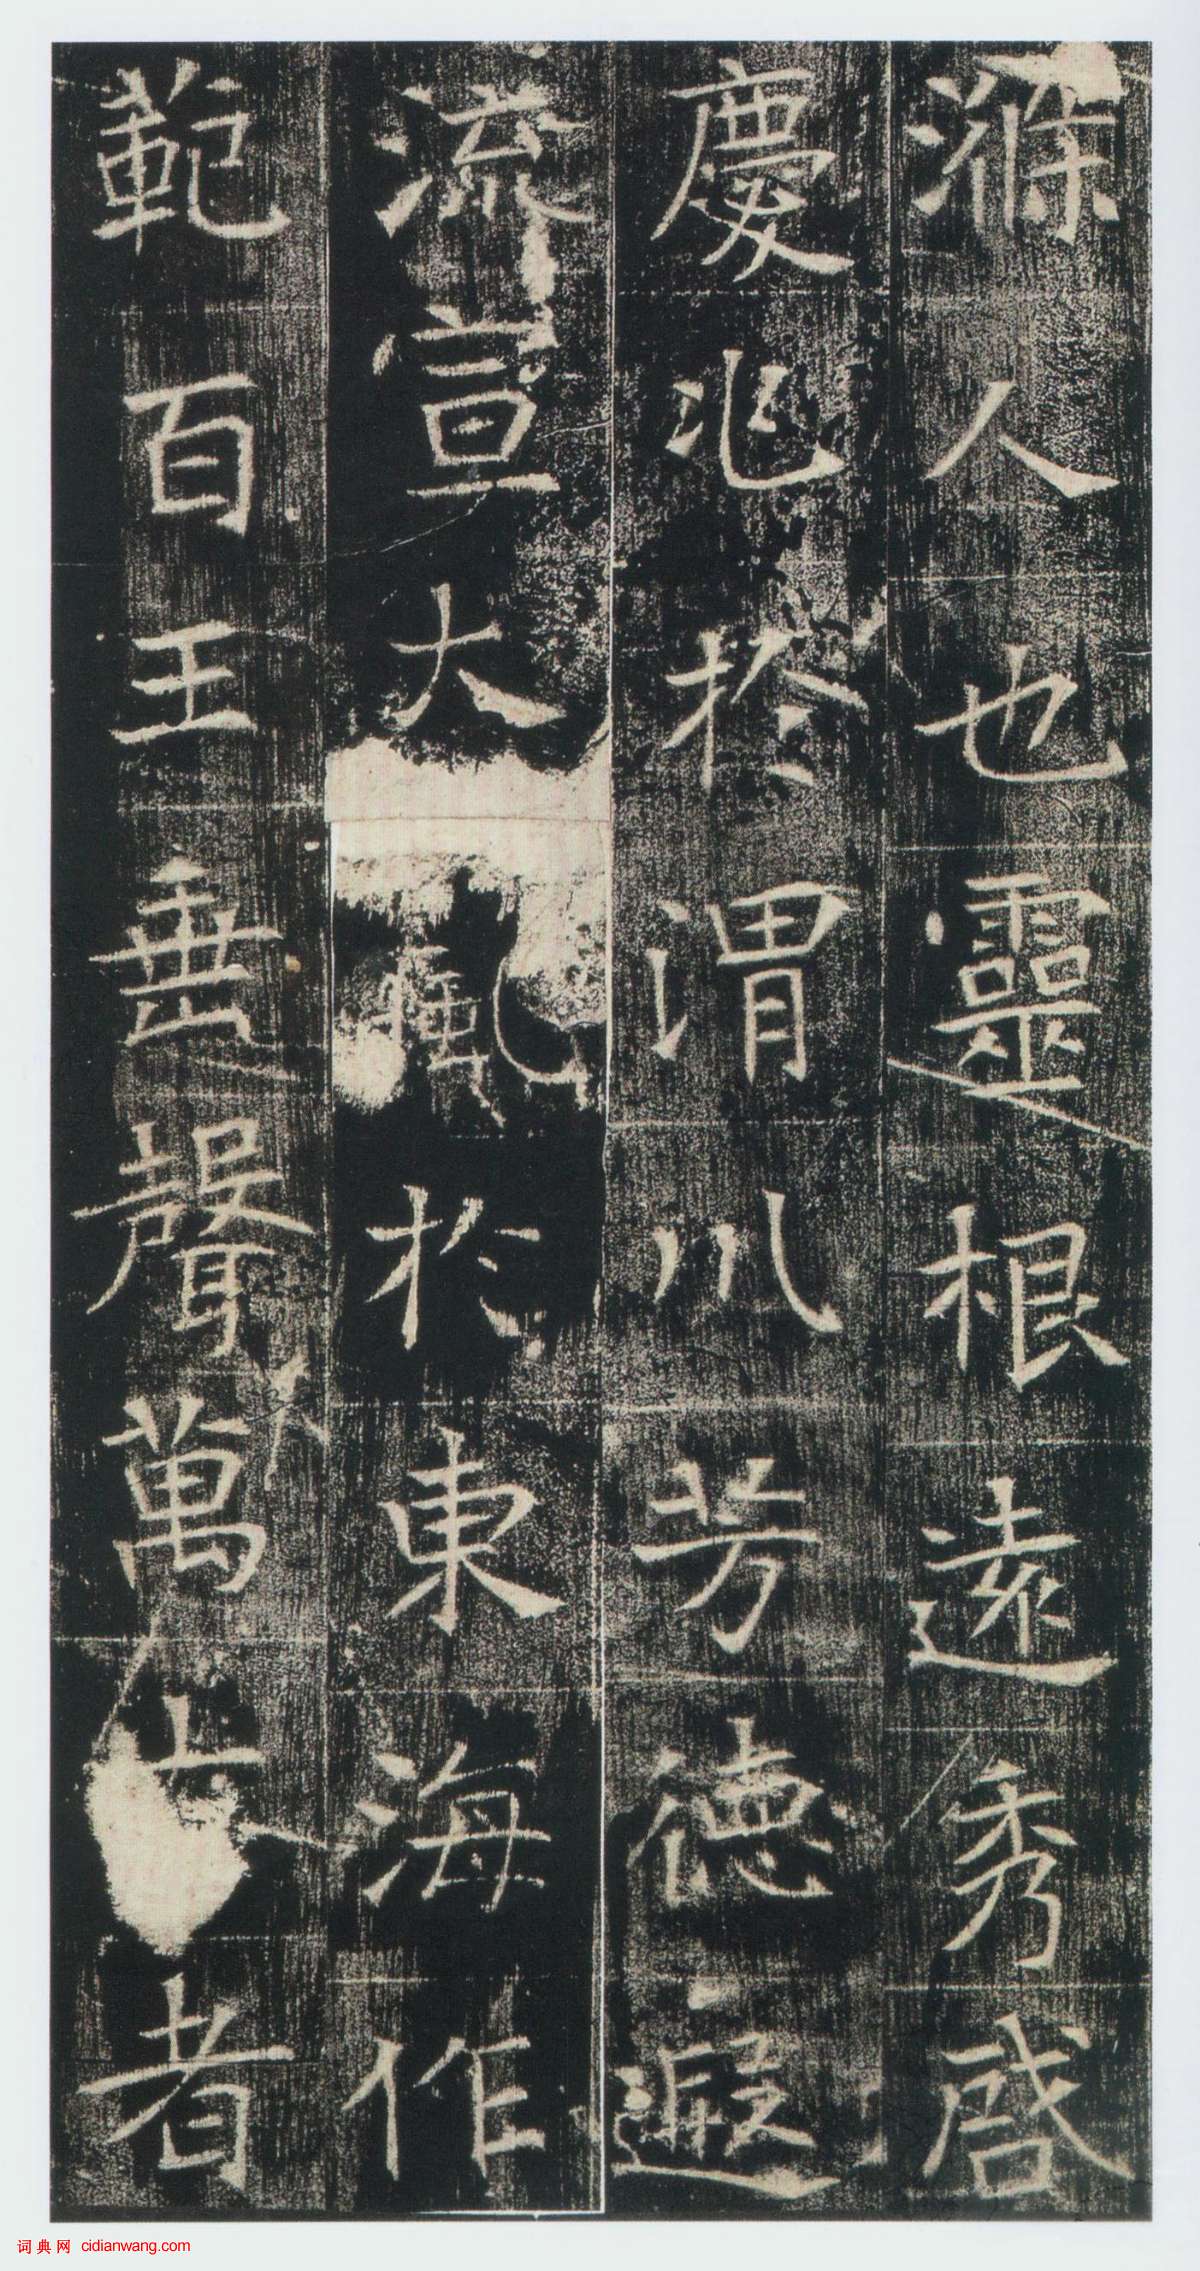 滌人也靈根遠秀啓
慶兆於渭川芳德遐
流宣大風於東海作
範百王垂聲萬者
词典网 cidianwang.com